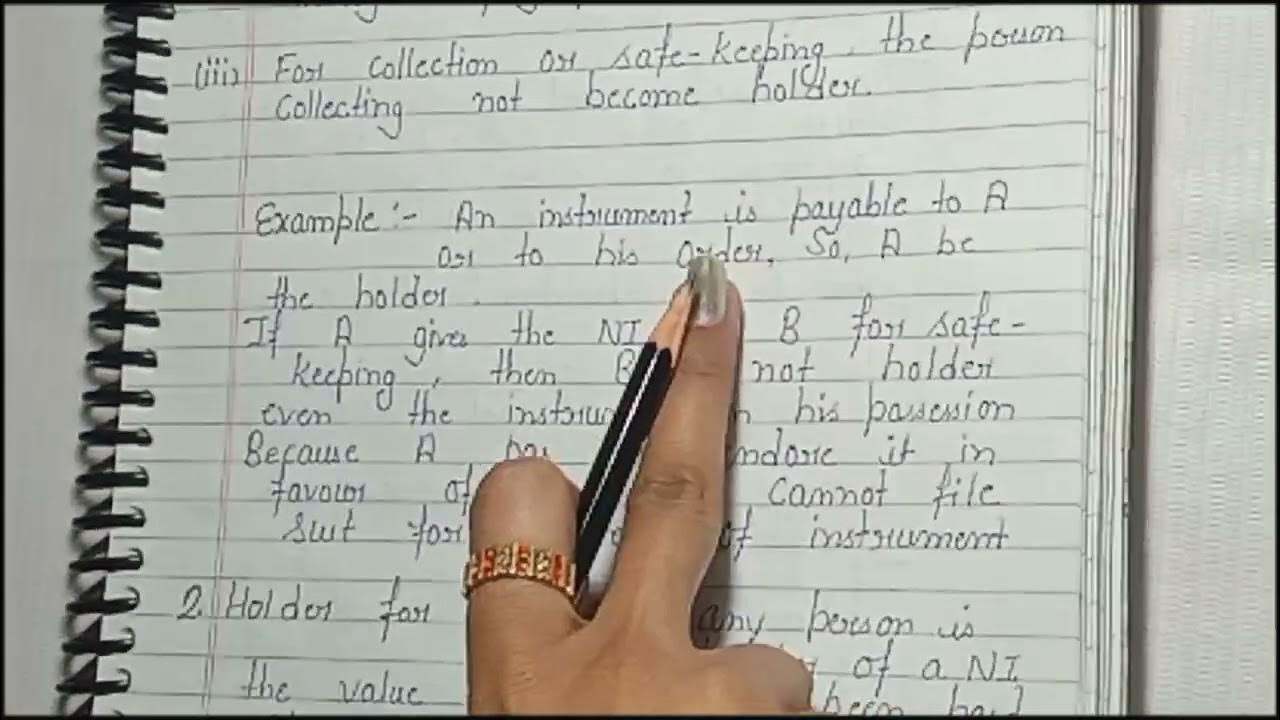 (iii) For collection or safe-keeping, the person
Collecting not become holder.
Example :- An instrument is payable to A
or to his order. So, A be
the holder.
If A gives the NI B for safe-
keeping, then B not holder
even the his possession
Because A it in
favour of cannot file
suit for of instrument
2. Holder for any person is
the value of a NI
been